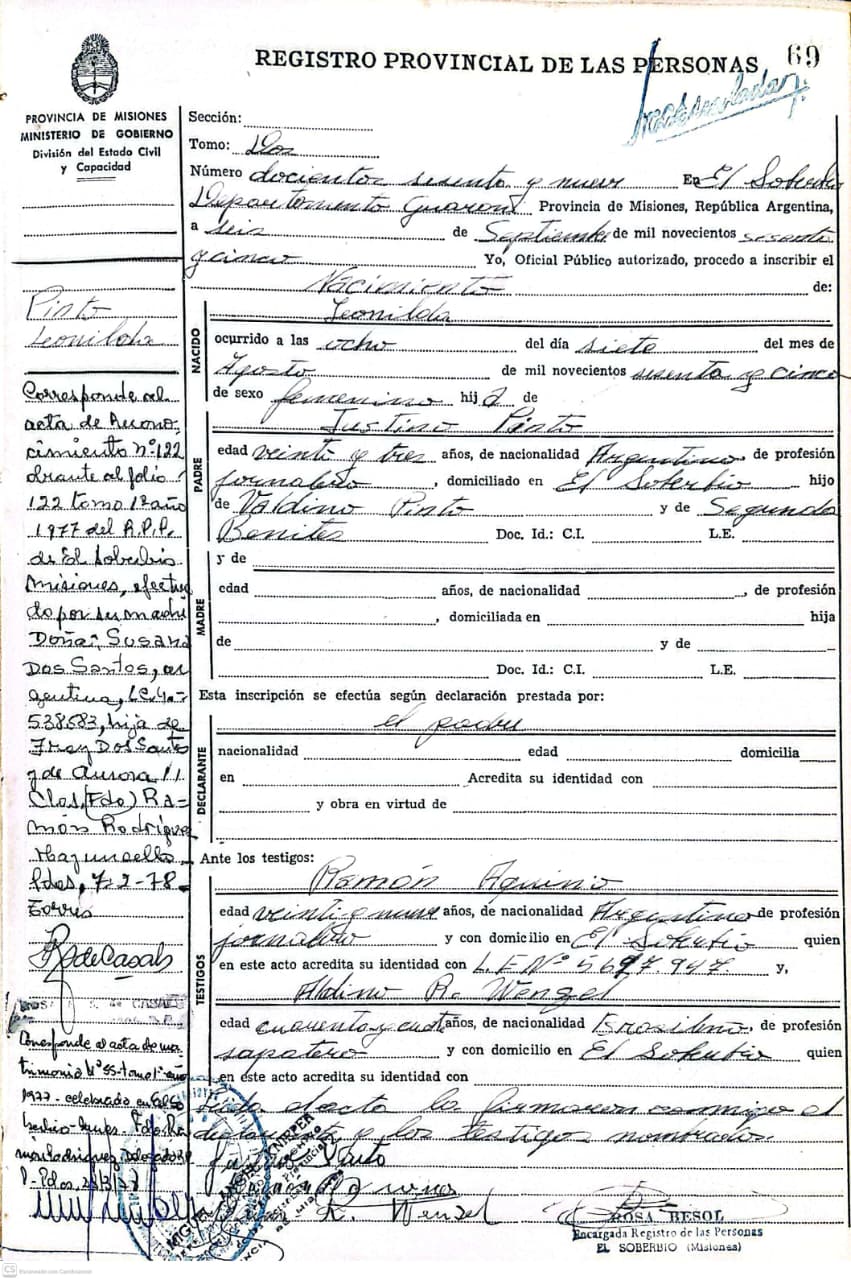 REGISTRO PROVINCIAL DE LAS PERSONAS
69
PROVINCIA DE MISIONES
MINISTERIO DE GOBIERNO
División del Estado Civil
y Capacidad
Sección:
Tomo: Dos
Número docientos sesenta y nueve En El Soberbio
Departamento Guaraní Provincia de Misiones, República Argentina,
a seis de Septiembre de mil novecientos sesenta
y cinco Yo, Oficial Público autorizado, procedo a inscribir el
Nacimiento de:
Pinto
Leonilda
NACIDO
Leonilda
ocurrido a las ocho del día siete del mes de
Agosto de mil novecientos sesenta y cinco
de sexo femenino hija de
PADRE
Justino Pinto
edad veinte y tres años, de nacionalidad Argentino, de profesión
jornalero, domiciliado en El Soberbio hijo
de Valdino Pinto y de Segunda
Benites Doc. Id.: C.I. L.E.
MADRE
y de
edad años, de nacionalidad , de profesión
, domiciliada en hija
de y de
Doc. Id.: C.I. L.E.
Esta inscripción se efectúa según declaración prestada por:
DECLARANTE
el padre
nacionalidad edad domicilia
en Acredita su identidad con
y obra en virtud de
Ante los testigos:
TESTIGOS
Ramón Aquino
edad veinti y nueve años, de nacionalidad Argentino de profesión
jornalero y con domicilio en El Soberbio quien
en este acto acredita su identidad con L.E Nº 5697.947. y,
Aldino R. Wenzel
edad cuarenta y cuatro años, de nacionalidad Brasileño, de profesión
sapatero y con domicilio en El Soberbio quien
en este acto acredita su identidad con
Leida el acta la firmaron conmigo el
declarante y los testigos nombrados.
Justino Pinto
R. Wenzel
ROSA BESOL
Encargada Registro de las Personas
EL SOBERBIO (Misiones)
Corresponde al
acta de Recono-
cimiento Nº 122
obrante al folio
122 tomo 1º año
1977 del R.P.P.
de El Soberbio
Misiones, efectua
do por su madre
Doña: Susana
Dos Santos, ar
gentina, L.C. 4.-
538583, hija de
Fray Dos Santos
y de Aurora
(Fdo) Ra-
món Rodríguez
Pdas, 7-2-78-
Torres
R de Casals
Corresponde al acta de ma
trimonio Nº 55-tomo 1º-año
1977- celebrado en El So
berbio- Fdo Ra
món Rodriguez, Delegado
P- Pdas, 28/3/78
MIGUEL ANGEL
CS Escaneado con CamScanner